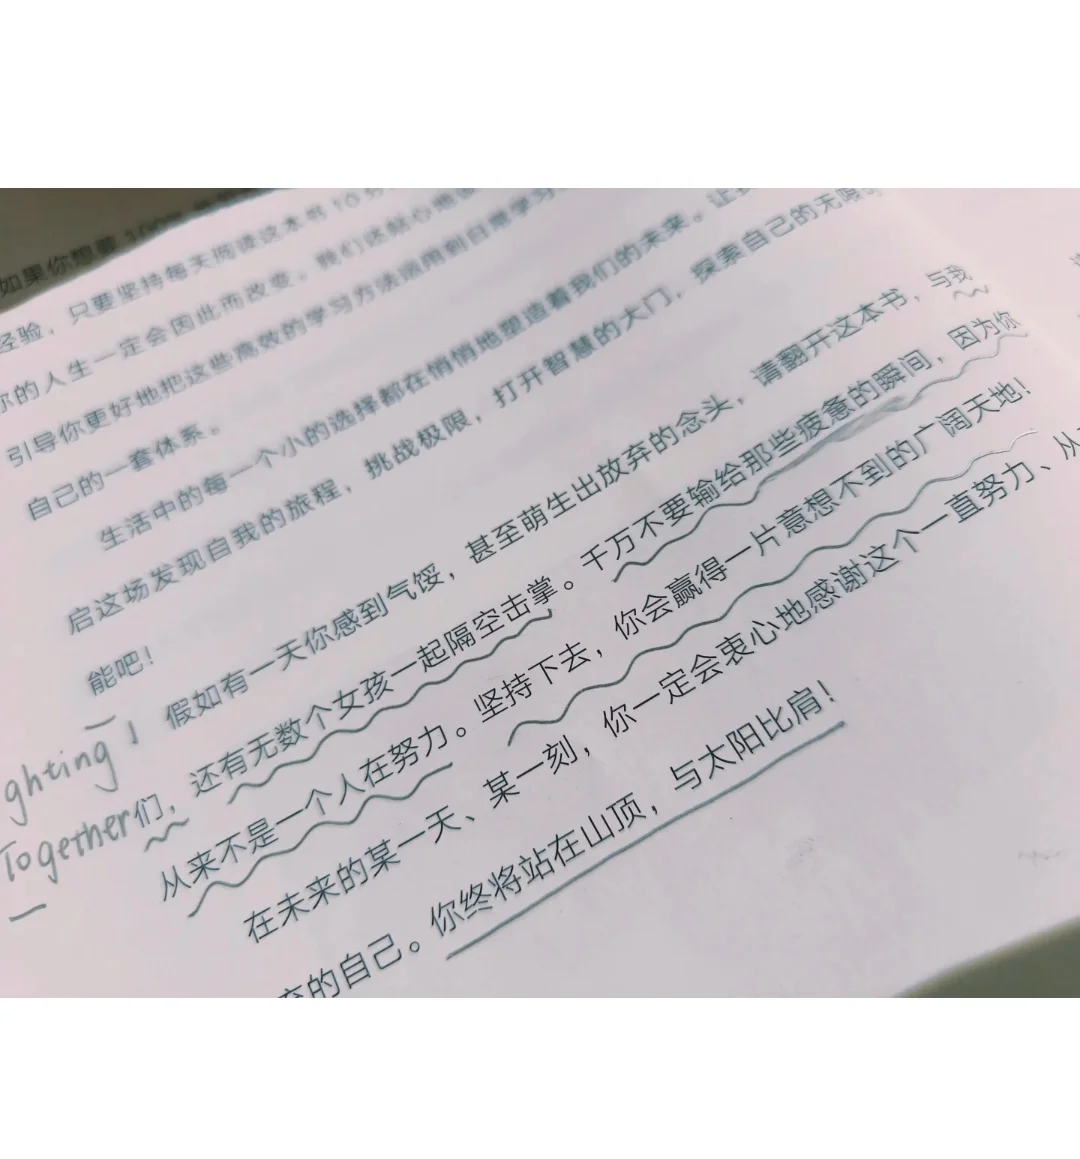 如果你想要100%
经验，只要坚持每天阅读这本书10分
你的人生一定会因此而改变。我们还贴心地
引导你更好地把这些高效的学习方法运用到日常学习
自己的一套体系。
生活中的每一个小的选择都在悄悄地塑造着我们的未来。让
启这场发现自我的旅程，挑战极限，打开智慧的大门，探索自己的无限
能吧！
假如有一天你感到气馁，甚至萌生出放弃的念头，请翻开这本书，与我
们，还有无数个女孩一起隔空击掌。千万不要输给那些疲惫的瞬间，因为你
从来不是一个人在努力。坚持下去，你会赢得一片意想不到的广阔天地！
在未来的某一天、某一刻，你一定会衷心地感谢这个一直努力、从
弃的自己。你终将站在山顶，与太阳比肩！
ghting!
Together